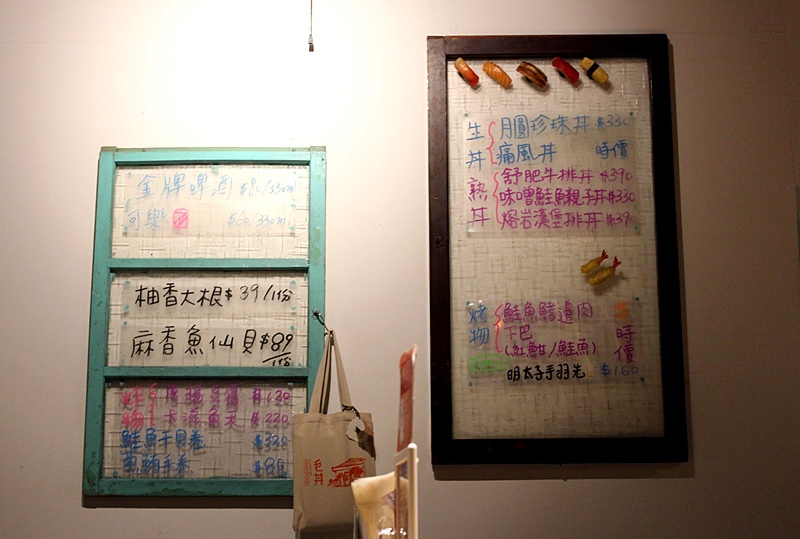 金牌啤酒 $80/330ml
可樂 $60/330ml
柚香大根 $39/1份
麻香魚仙貝 $89/1份
炸物
$120
魚天 $220
鮭魚手貝卷 $320
手卷 $80
毛丼
生丼
月圓珍珠丼 $330
痛風丼 時價
熟丼
舒肥牛排丼 $390
味噌鮭魚親子丼 $330
熔岩漢堡排丼 $390
烤物
鮭魚鰭邊肉
下巴 時價
(紅魽/鮭魚)
明太子手羽先 $160